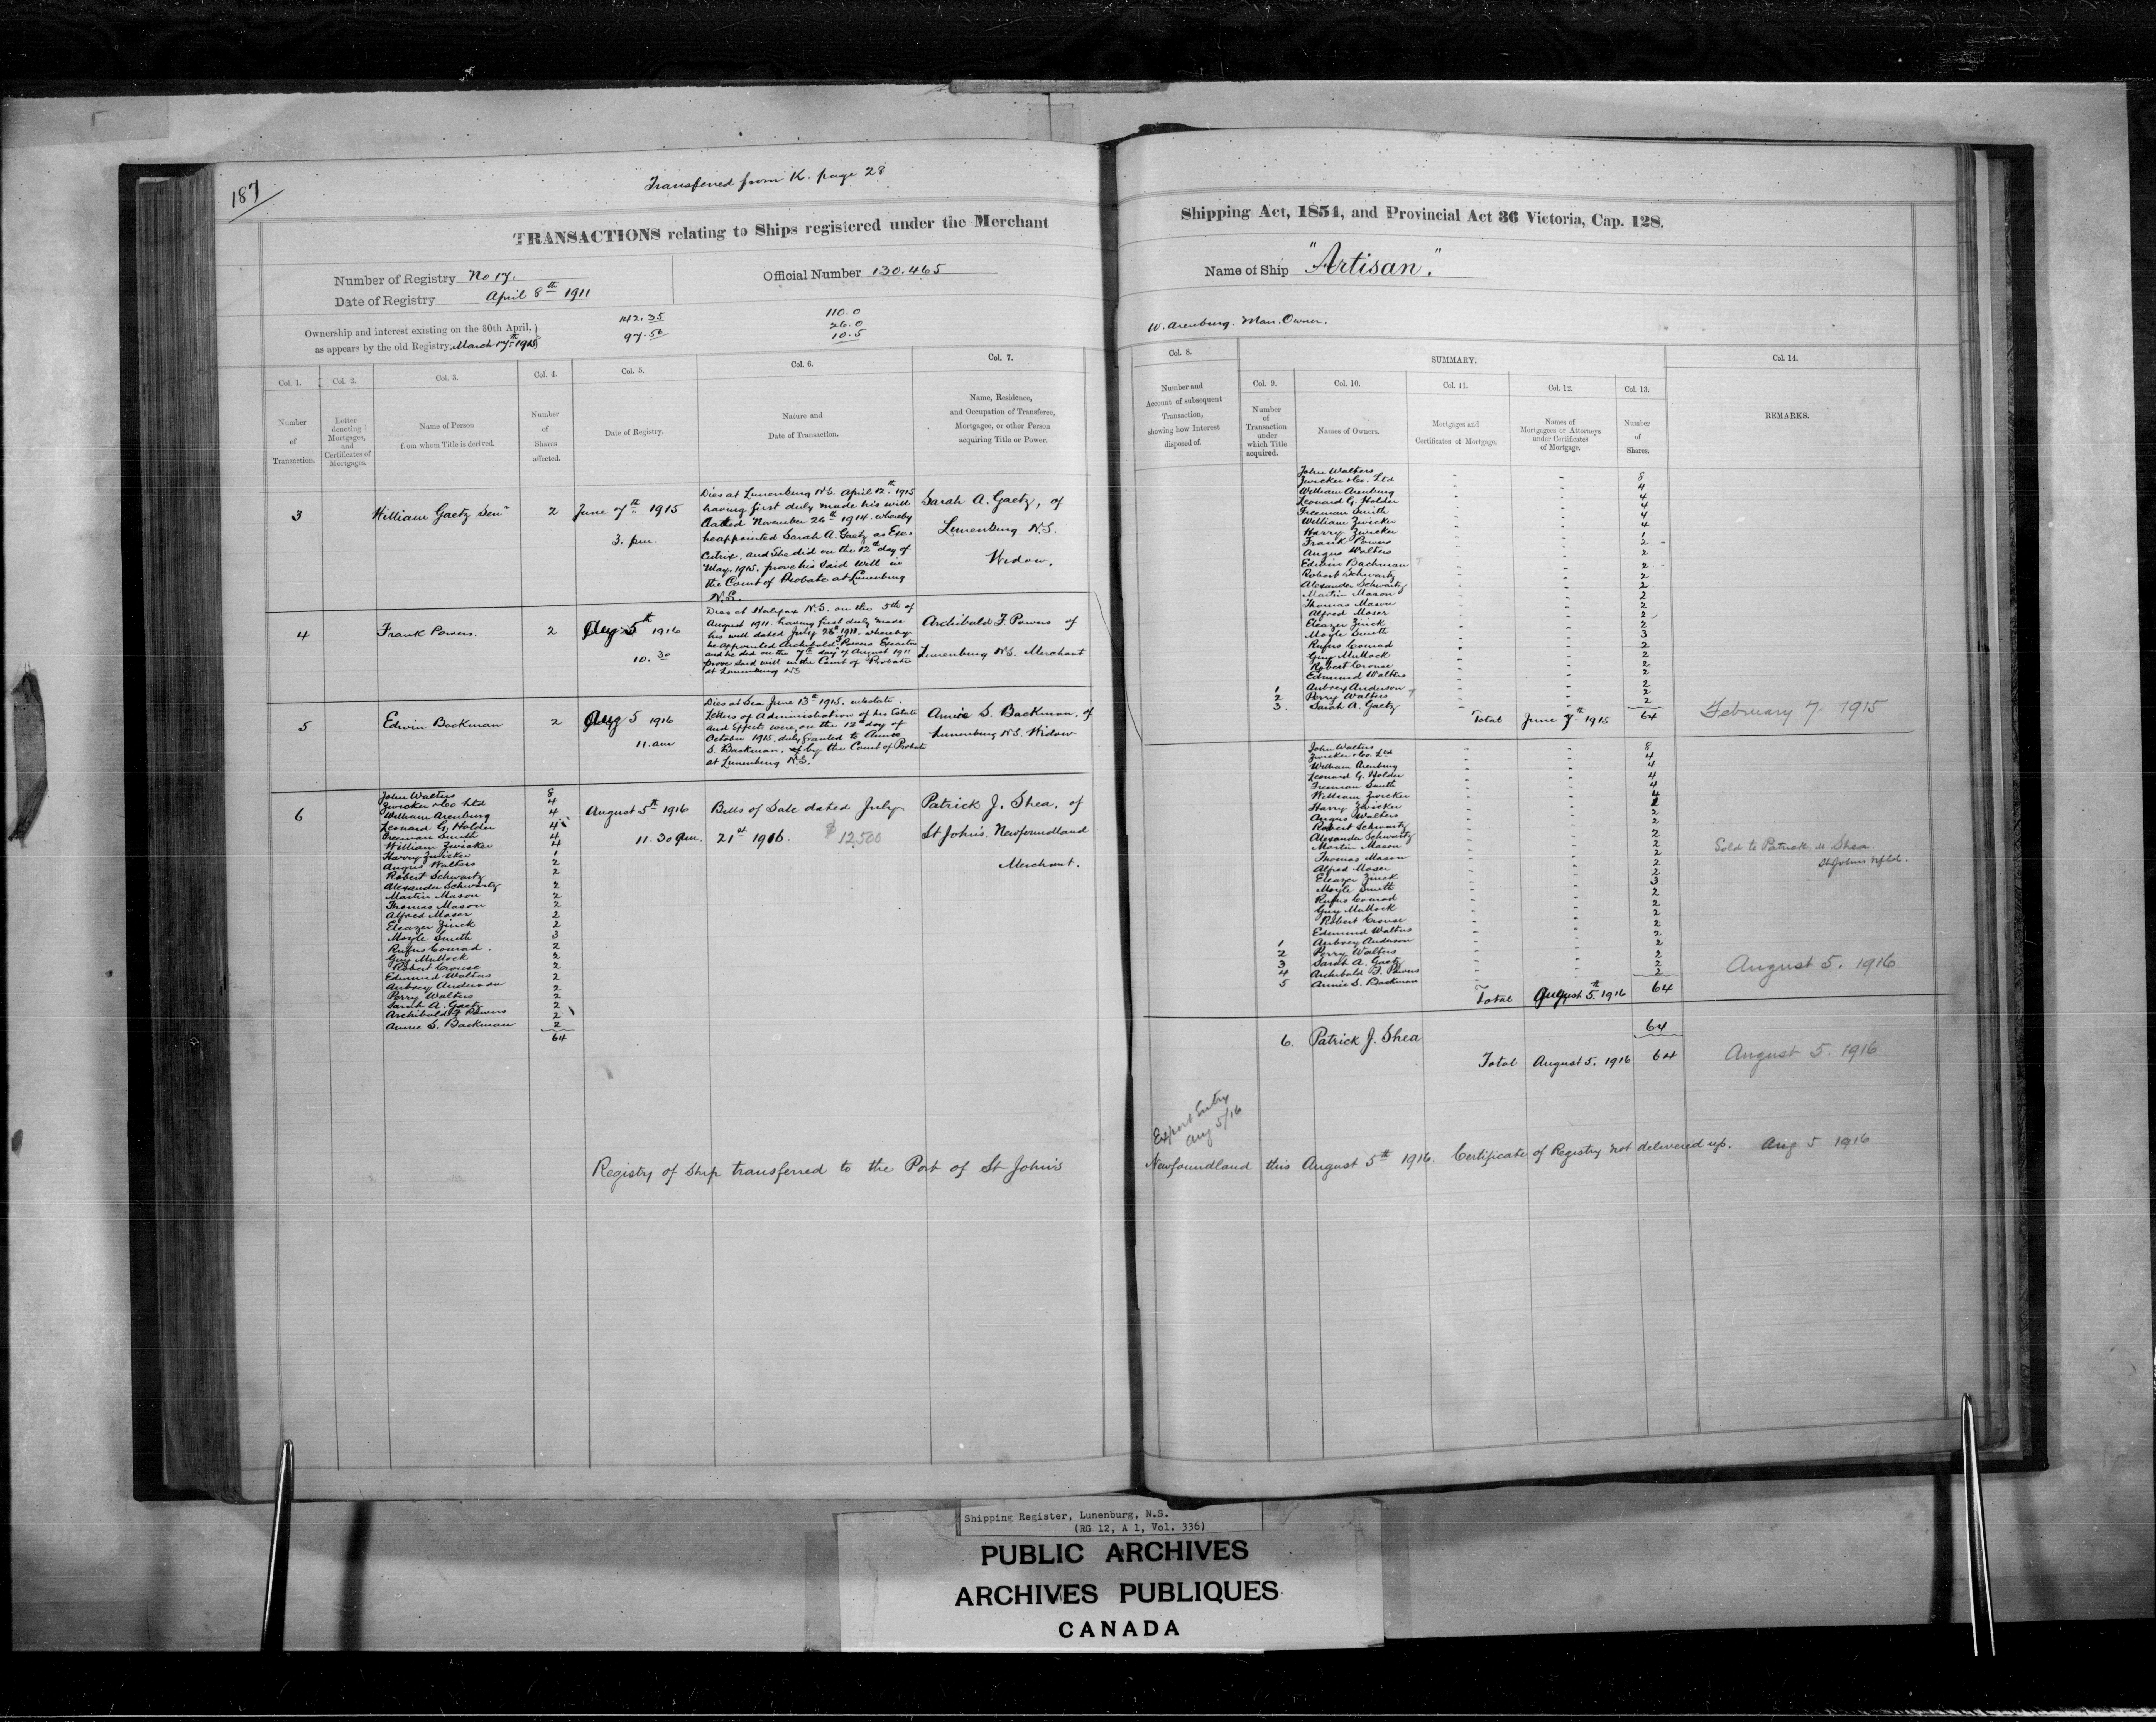 187
Transferred from K. page 28
TRANSACTIONS relating to Ships registered under the Merchant
Number of Registry No 17.
Official Number 130.465
Date of Registry April 8th 1911
Ownership and interest existing on the 30th April,
as appears by the old Registry, March 17th 1915
142.35
97.50
110.0
26.0
10.5
Col. 1.
Col. 2.
Col. 3.
Col. 4.
Col. 5.
Col. 6.
Col. 7.
Number
of
Transaction.
Letter
denoting
Mortgages,
and
Certificates of
Mortgages.
Name of Person
from whom Title is derived.
Number
of
Shares
affected.
Date of Registry.
Nature and
Date of Transaction.
Name, Residence,
and Occupation of Transferee,
Mortgagee, or other Person
acquiring Title or Power.
3
William Gaetz Senr
2
June 7th 1915
3. pm.
Dies at Lunenburg N.S. April 12th 1915
having first duly made his will
dated November 26th 1914. whereby
he appointed Sarah A. Gaetz as Exe-
cutrix, and she did on the 12th day of
May, 1915. prove his said will in
the Court of Probate at Lunenburg
N.S.
Sarah A. Gaetz, of
Lunenburg N.S.
Widow.
4
Frank Powers.
2
Aug 5th 1916
10.30
Dies at Halifax N.S. on the 5th of
August 1911. having first duly made
his will dated July 28th 1911. whereby
he appointed Archibald F Powers Executor
and he did on the 7th day of August 1911
prove said will in the Court of Probate
at Lunenburg NS
Archibald F Powers of
Lunenburg N.S. Merchant
5
Edwin Backman
2
Aug 5 1916
11. am
Dies at Sea June 13th 1915. intestate.
Letters of Administration of his Estate
and Effects were, on the 12th day of
October 1915, duly granted to Annie
S. Backman, by the Court of Probate
at Lunenburg N.S.
Annie S. Backman, of
Lunenburg N.S. Widow
6
John Walters 8
Zwicker & Co Ltd 4
William Arenburg 4
Leonard G. Holder 4
Freeman Smith 4
William Zwicker 4
Harry Zwicker 1
Angus Walters 2
Robert Schwartz 2
Alexander Schwartz 2
Martin Mason 2
Thomas Mason 2
Alfred Moser 2
Eleazer Zinck 2
Moyle Smith 3
Rufus Conrad. 2
Guy Mullock 2
Robert Crouse 2
Edmund Walters 2
Aubrey Anderson 2
Perry Walters 2
Sarah A. Gaetz 2
Archibald F Powers 2
Annie S. Backman 2
64
August 5th 1916
11.30 am.
Bills of Sale dated July
21st 1916. $12,500
Patrick J. Shea, of
St John's. Newfoundland
Merchant.
Registry of Ship transferred to the Port of St John's
Shipping Act, 1854, and Provincial Act 36 Victoria, Cap. 128.
Name of Ship "Artisan".
W. Arenburg. Man. Owner.
Col. 8.
SUMMARY.
Col. 14.
Col. 9.
Col. 10.
Col. 11.
Col. 12.
Col. 13.
Number and
Account of subsequent
Transaction,
showing how Interest
disposed of.
Number
of
Transaction
under
which Title
acquired.
Names of Owners.
Mortgages and
Certificates of Mortgage.
Names of
Mortgagees or Attorneys
under Certificates
of Mortgage.
Number
of
Shares.
REMARKS.
John Walters 8
Zwicker & Co. Ltd 4
William Arenburg 4
Leonard G. Holder 4
Freeman Smith 4
William Zwicker 4
Harry Zwicker 1
Frank Powers 2
Angus Walters 2
Edwin Backman 2
Robert Schwartz 2
Alexander Schwartz 2
Martin Mason 2
Thomas Mason 2
Alfred Moser 2
Eleazer Zinck 2
Moyle Smith 3
Rufus Conrad 2
Guy Mullock 2
Robert Crouse 2
Edmund Walters 2
1 Aubrey Anderson 2
2 Perry Walters 2
3. Sarah A. Gaetz 2
Total June 7th 1915 64
February 7. 1915
John Walters 8
Zwicker & Co. Ltd 4
William Arenburg 4
Leonard G. Holder 4
Freeman Smith 4
William Zwicker 4
Harry Zwicker 1
Angus Walters 2
Robert Schwartz 2
Alexander Schwartz 2
Martin Mason 2
Thomas Mason 2
Alfred Moser 2
Eleazer Zinck 2
Moyle Smith 3
Rufus Conrad 2
Guy Mullock 2
Robert Crouse 2
Edmund Walters 2
1 Aubrey Anderson 2
2 Perry Walters 2
3 Sarah A. Gaetz 2
4 Archibald F. Powers 2
5 Annie S. Backman 2
Total August 5th 1916 64
Sold to Patrick M Shea.
St Johns Nfld.
August 5. 1916
6. Patrick J. Shea 64
Total August 5. 1916 64
August 5. 1916
Export Entry
Aug 5/16
Newfoundland this August 5th 1916. Certificate of Registry not delivered up. Aug 5 1916
Shipping Register, Lunenburg, N.S.
(RG 12, A 1, Vol. 336)
PUBLIC ARCHIVES
ARCHIVES PUBLIQUES
CANADA